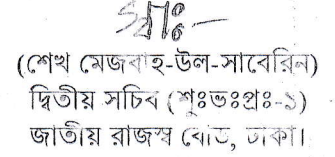 স্বাঃ-
(শেখ মেজবাহ-উল-সাবেরিন)
দ্বিতীয় সচিব (শুঃভঃপ্রঃ-১)
জাতীয় রাজস্ব বোর্ড, ঢাকা।